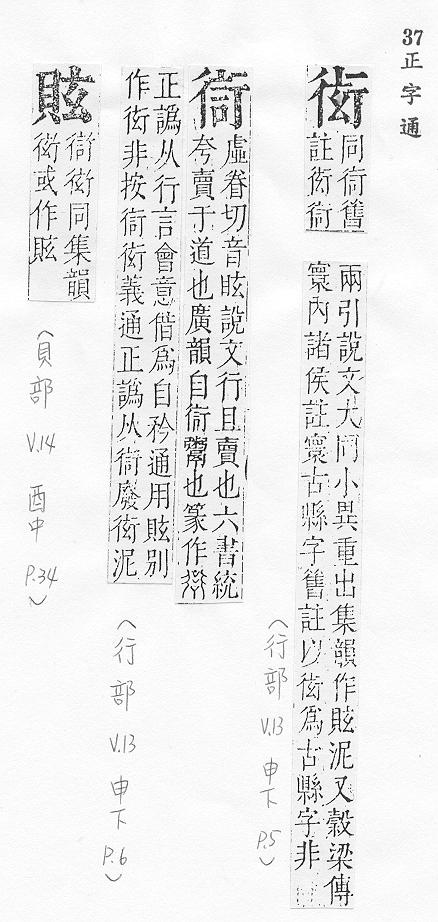 37
正字通
衒
同衒舊
註衒衒
兩引說文大同小異重出集韻作眩泥又穀梁傳
寰內諸侯註寰古縣字舊註以衒爲古縣字非
衒
虛眷切音眩說文行且賣也六書統
夸賣于道也廣韻自衒鬻也篆作
正譌从行言會意借爲自矜通用眩別
作衒非按衒衒義通正譌从衒廢衒泥
眩
衒衒同集韻
衒或作眩
(行部 V.13 申下 P.5)
(行部 V.13 申下 P.6)
(貝部 V.14 酉中 P.34)